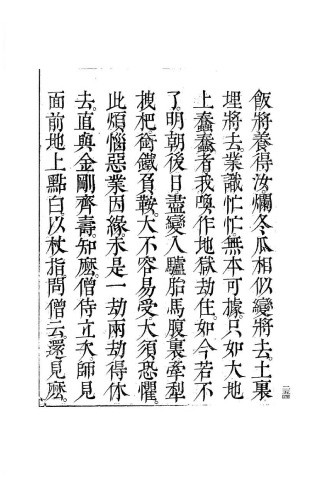 飯將養得汝爛冬瓜相似變將去。土裏
埋將去。業識忙忙。無本可據。只如大地
上蠢蠢者。我喚作地獄劫住。如今若不
了。明朝後日盡變入驢胎馬腹裏。牽犁
拽杷。銜鐵負鞍。大不容易受。大須恐懼。
此煩惱惡業因緣。未是一劫兩劫得休
去。直與金剛齊壽。知麼。僧侍立次。師見
面前地上點白。以杖指問僧云。還見麼。
一五四